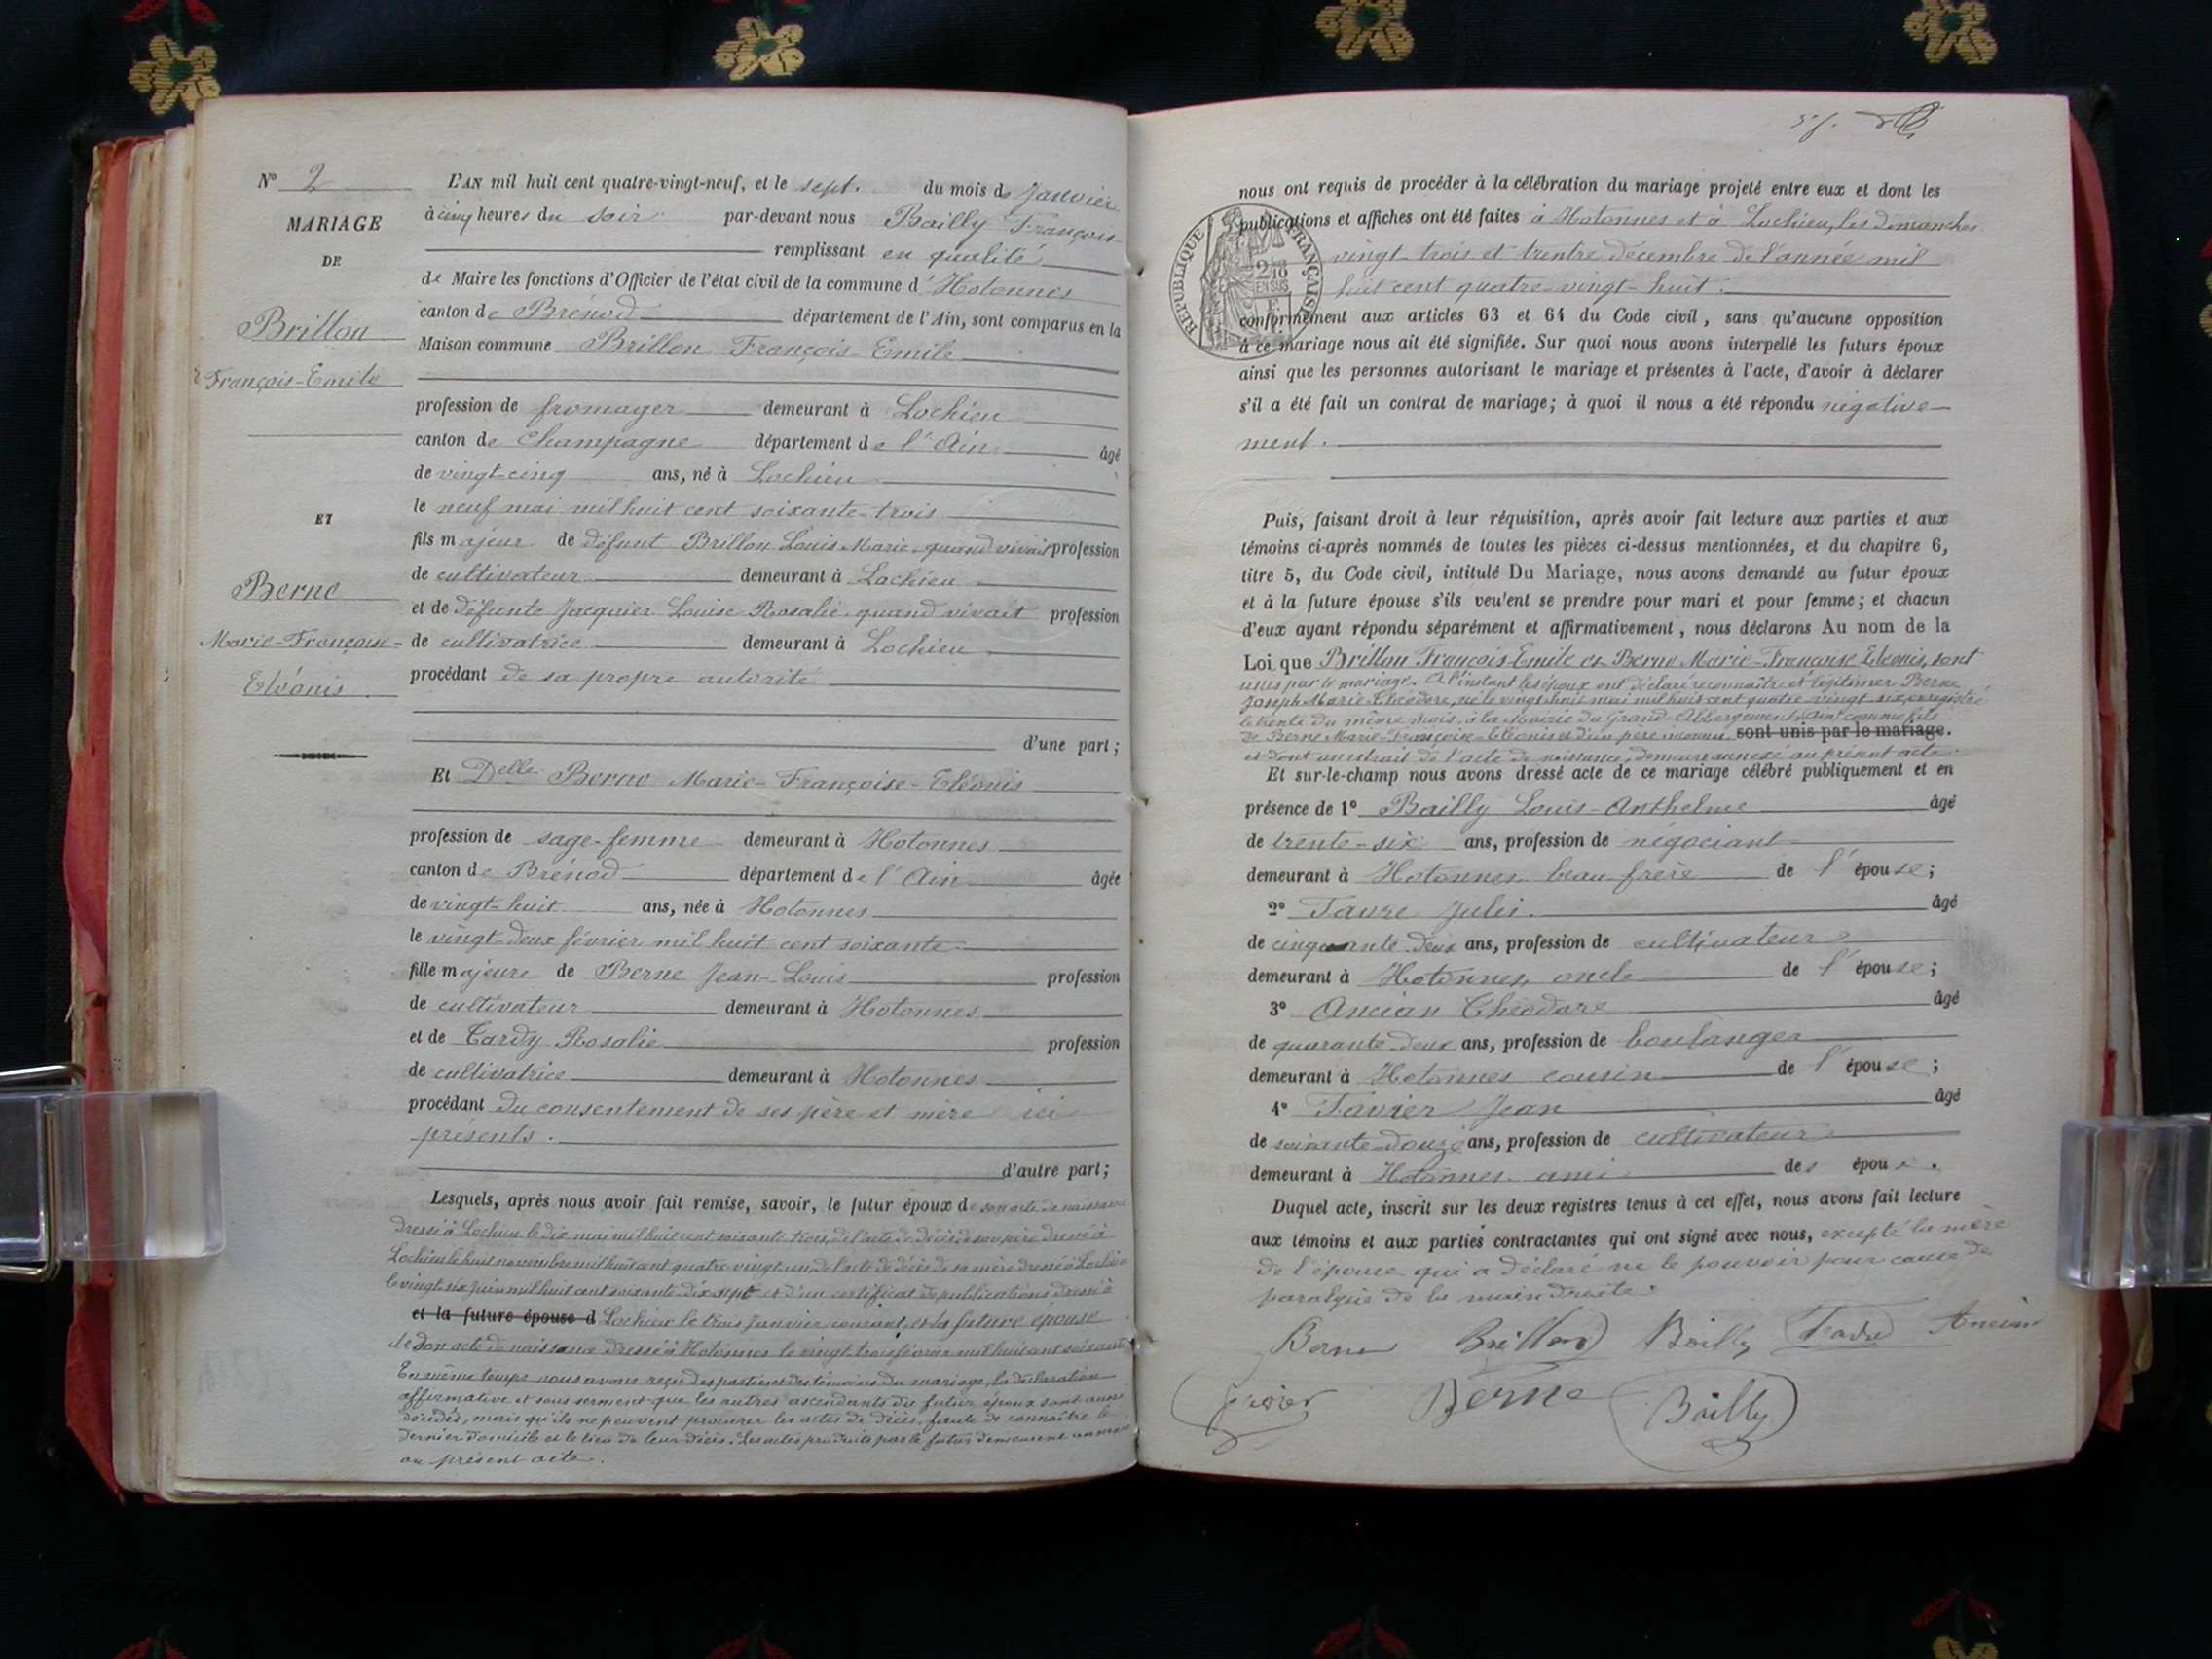 N° 2
MARIAGE
DE
Brillon
François-Emile
ET
Berne
Marie-Françoise-
Eléonis.
L'AN mil huit cent quatre-vingt-neuf, et le sept. du mois de Janvier
à cinq heures du soir par-devant nous Bailly François
remplissant en qualité
de Maire les fonctions d'Officier de l'état civil de la commune d'Hotonnes
canton de Brénod département de l'Ain, sont comparus en la
Maison commune Brillon François-Emile
profession de fromager demeurant à Lochieu
canton de Champagne département de l'Ain âgé
de vingt-cinq ans, né à Lochieu
le neuf mai mil huit cent soixante-trois
fils majeur de défunt Brillon Louis Marie, quand vivait profession
de cultivateur demeurant à Lochieu
et de défunte Jacquier Louise Rosalie quand vivait profession
de cultivatrice demeurant à Lochieu
procédant de sa propre autorité
d'une part;
Et Delle Berne Marie-Françoise-Eléonis
profession de sage-femme demeurant à Hotonnes
canton de Brénod département de l'Ain âgée
de vingt-huit ans, née à Hotonnes
le vingt-deux février mil huit cent soixante
fille majeure de Berne Jean-Louis profession
de cultivateur demeurant à Hotonnes
et de Tardy Rosalie profession
de cultivatrice demeurant à Hotonnes
procédant du consentement de ses père et mère ici
présents.
d'autre part;
Lesquels, après nous avoir fait remise, savoir, le futur époux de son acte de naissance
dressé à Lochieu le dix mai mil huit cent soixante trois, de l'acte de décès de son père dressé à
Lochieu le huit novembre mil huit cent quatre-vingt-un, de l'acte de décès de sa mère dressé à Lochieu
le vingt six juin mil huit cent soixante dix sept et d'un certificat de publications dressé à
et la future épouse d Lochieu le trois Janvier courant, et la future épouse
de son acte de naissance dressé à Hotonnes le vingt trois février mil huit cent soixante
En même temps nous avons reçu des parties et des témoins du mariage, la déclaration
affirmative et sous serment que les autres ascendants du futur époux sont
décédés, mais qu'ils ne peuvent procurer les actes de décès, faute de connaître le
dernier domicile et le lieu de leur décès. Les actes produits par le futur demeurent
au présent acte.
nous ont requis de procéder à la célébration du mariage projeté entre eux et dont les
publications et affiches ont été faites à Hotonnes et à Lochieu, les dimanches
vingt-trois et trentre décembre de l'année mil
huit cent quatre-vingt-huit.
RÉPUBLIQUE FRANÇAISE
2/10 EN SUS
conformément aux articles 63 et 64 du Code civil, sans qu'aucune opposition
à ce mariage nous ait été signifiée. Sur quoi nous avons interpellé les futurs époux
ainsi que les personnes autorisant le mariage et présentes à l'acte, d'avoir à déclarer
s'il a été fait un contrat de mariage; à quoi il nous a été répondu négative-
ment.
Puis, faisant droit à leur réquisition, après avoir fait lecture aux parties et aux
témoins ci-après nommés de toutes les pièces ci-dessus mentionnées, et du chapitre 6,
titre 5, du Code civil, intitulé Du Mariage, nous avons demandé au futur époux
et à la future épouse s'ils veulent se prendre pour mari et pour femme; et chacun
d'eux ayant répondu séparément et affirmativement, nous déclarons Au nom de la
Loi que Brillon François-Emile et Berne Marie-Françoise Eléonis, sont
unis par le mariage. A l'instant les époux ont déclaré reconnaître et légitimer Berne
Joseph Marie Théodore, né le vingt-huit mai mil huit cent quatre-vingt-six, enregistré
le trente du même mois, à la Mairie du Grand-Abbergement (Ain) comme fils
de Berne Marie-Françoise-Eléonis et d'un père inconnu sont unis par le mariage.
et dont un extrait de l'acte de naissance, demeure annexé au présent acte.
Et sur-le-champ nous avons dressé acte de ce mariage célébré publiquement et en
présence de 1° Bailly Louis-Anthelme âgé
de trente-six ans, profession de négociant
demeurant à Hotonnes beau frère de l'épouse;
2° Favre Julis. âgé
de cinquante-deux ans, profession de cultivateur
demeurant à Hotonnes, oncle de l'épouse;
3° Ancian Théodore âgé
de quarante-deux ans, profession de boulanger
demeurant à Hotonnes cousin de l'épouse;
4° Favier Jean âgé
de soixante-douze ans, profession de cultivateur
demeurant à Hotonnes ami des époux.
Duquel acte, inscrit sur les deux registres tenus à cet effet, nous avons fait lecture
aux témoins et aux parties contractantes qui ont signé avec nous, excepté la mère
de l'épouse qui a déclaré ne le pouvoir pour cause de
paralysie de la main droite.
Berne Brillon Bailly Favre Ancian
Favier Berne Bailly